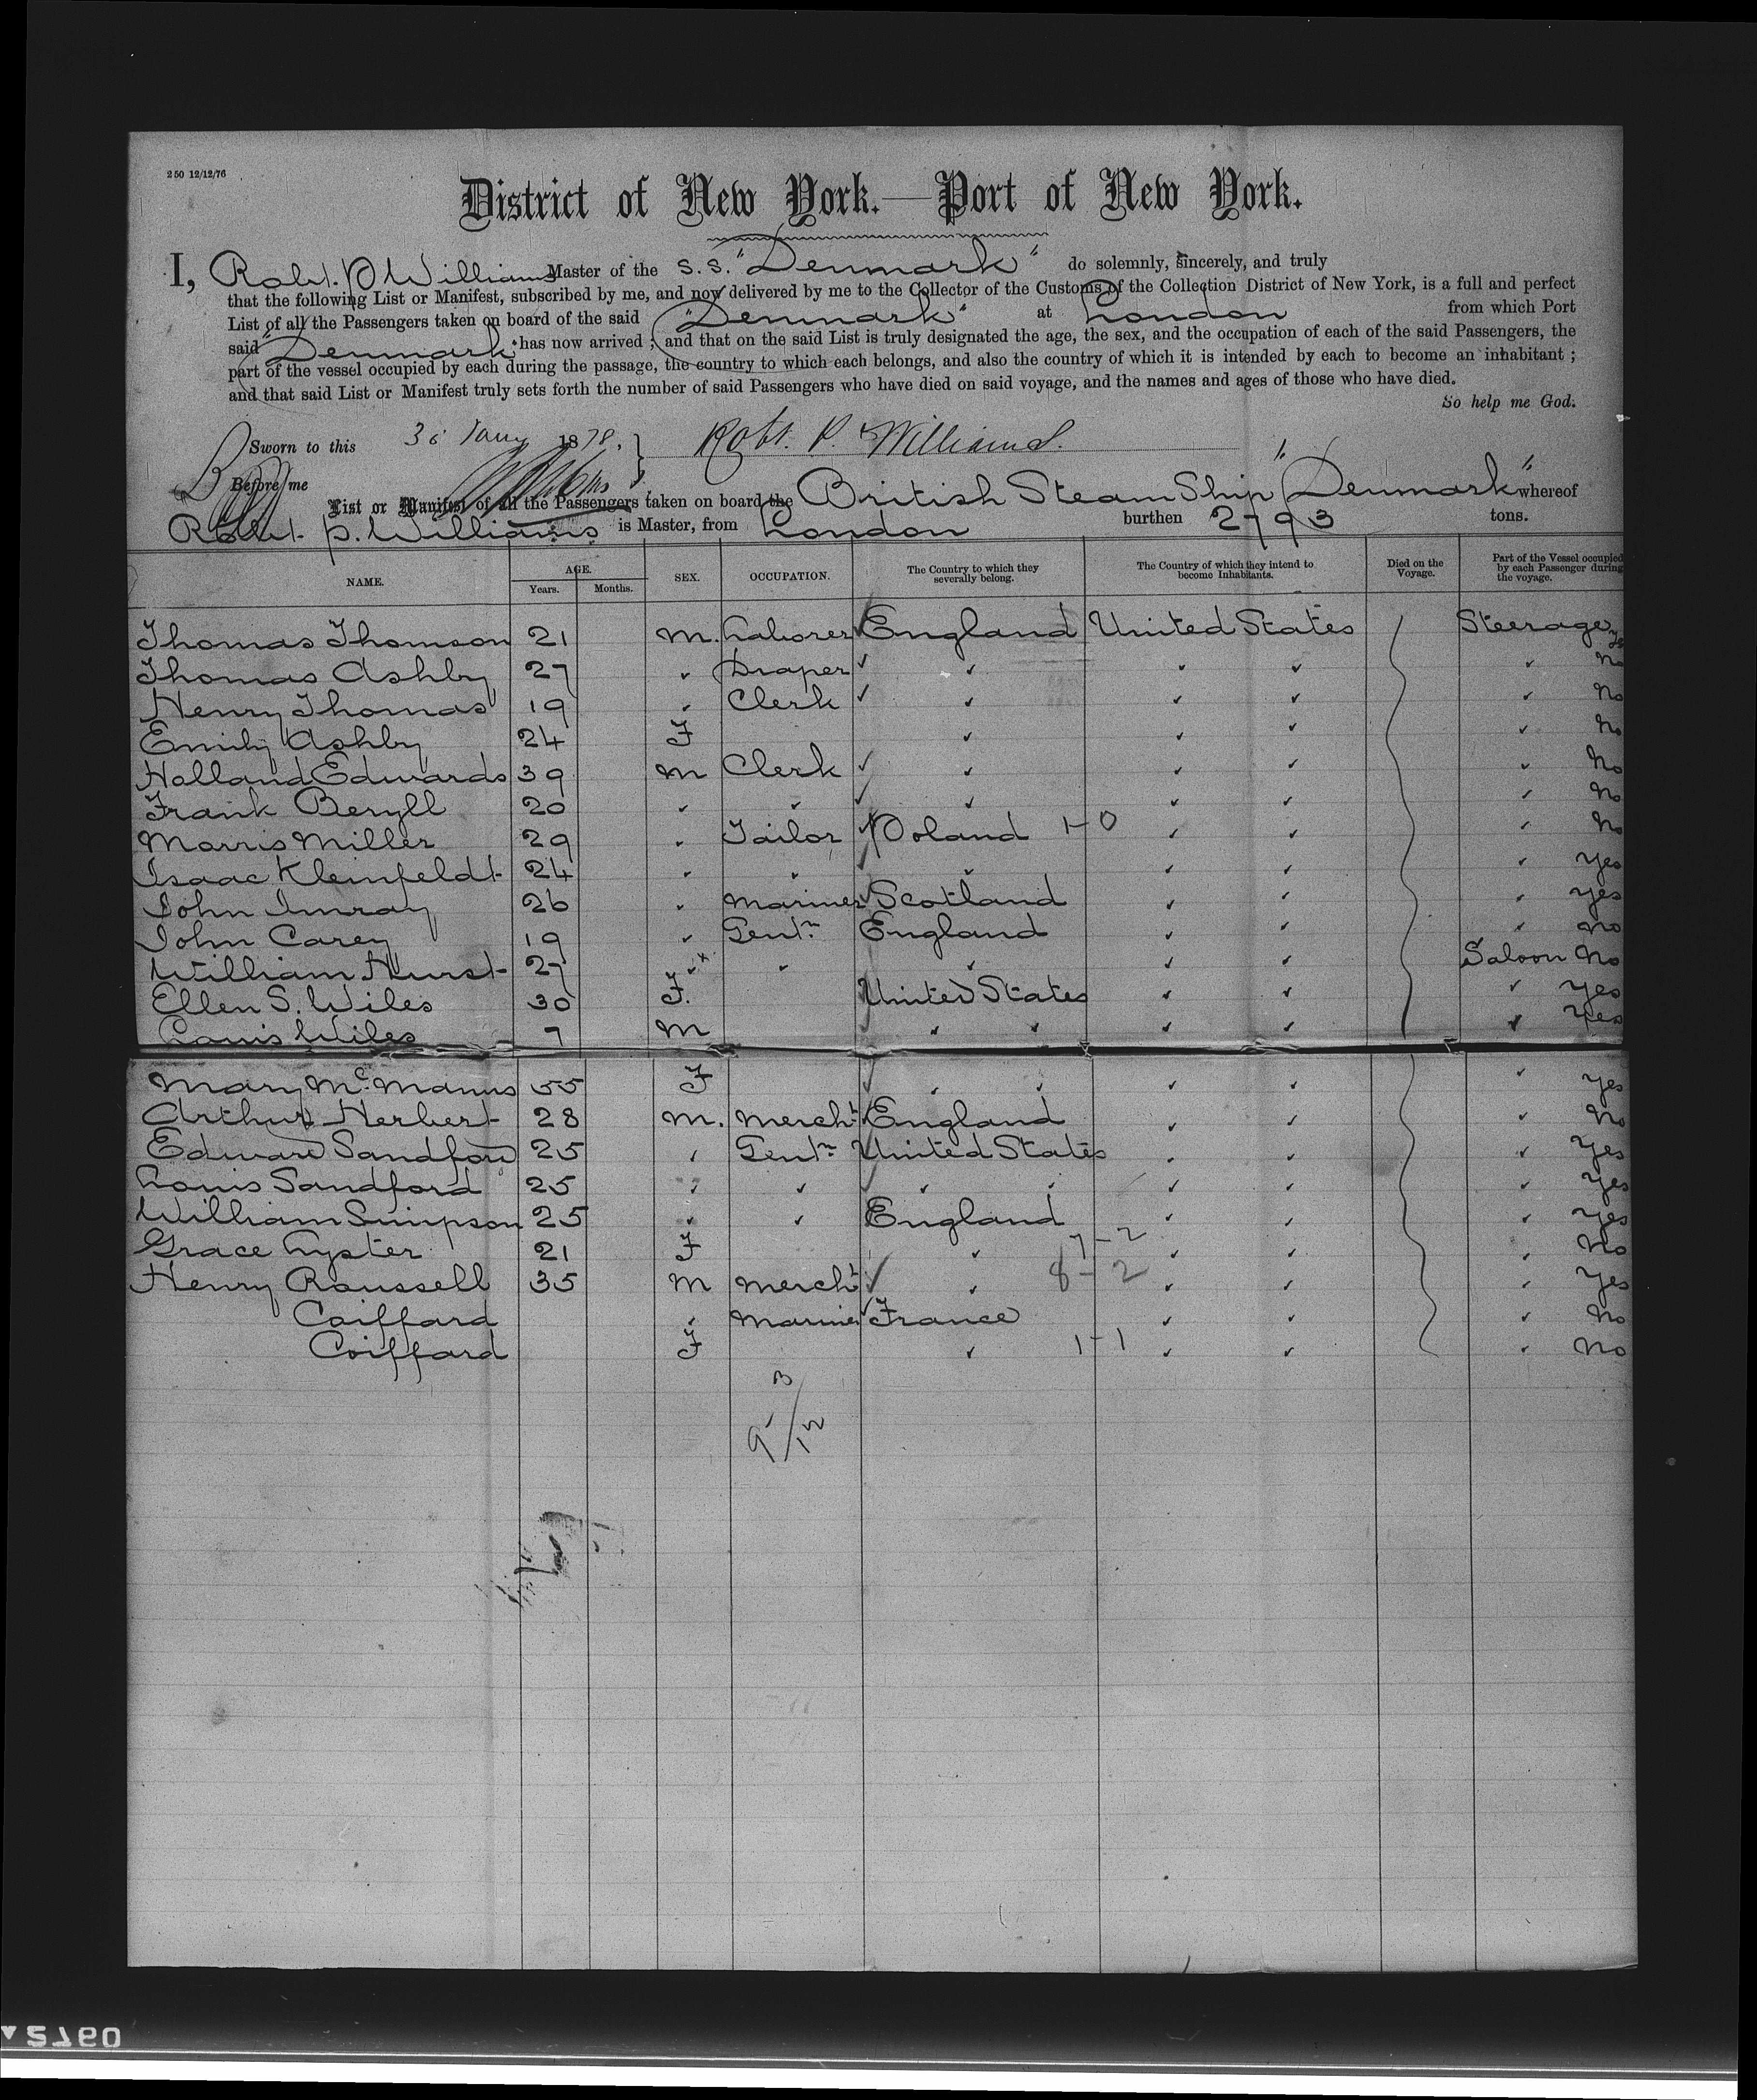 250 12/12/76
District of New York.—Port of New York.
I, Robt. P Williams Master of the S.S. "Denmark" do solemnly, sincerely, and truly
that the following List or Manifest, subscribed by me, and now delivered by me to the Collector of the Customs of the Collection District of New York, is a full and perfect
List of all the Passengers taken on board of the said "Denmark" at London from which Port
said "Denmark" has now arrived ; and that on the said List is truly designated the age, the sex, and the occupation of each of the said Passengers, the
part of the vessel occupied by each during the passage, the country to which each belongs, and also the country of which it is intended by each to become an inhabitant ;
and that said List or Manifest truly sets forth the number of said Passengers who have died on said voyage, and the names and ages of those who have died.
So help me God.
Sworn to this 30 Jany 1878, } Robt. P. Williams.
Before me
List or Manifest of all the Passengers taken on board the British Steam Ship "Denmark" whereof
Robert P. Williams is Master, from London burthen 2793 tons.
NAME. AGE. Years. Months. SEX. OCCUPATION. The Country to which they severally belong. The Country of which they intend to become Inhabitants. Died on the Voyage. Part of the Vessel occupied by each Passenger during the voyage.
Thomas Thomson 21 M. Laborer ✓ England United States Steerage yes
Thomas Ashby 27 " Draper ✓ " " " " No
Henry Thomas 19 " Clerk ✓ " " " " No
Emily Ashby 24 F " " " " No
Holland Edwards 39 M Clerk ✓ " " " " No
Frank Beryll 20 " " ✓ " " " " No
Morris Miller 29 " Tailor ✓ Poland 1-0 " " " No
Isaac Kleinfeldt 24 " " ✓ " " " " Yes
John Imray 26 " Mariner ✓ Scotland " " " Yes
John Carey 19 " Gentn England " " " No
William Hurst 27 " " " " " Saloon No
Ellen S. Wiles 30 F. United States " " " Yes
Louis Wiles 7 M " " " " " Yes
Mary McManus 55 F " " " " " Yes
Arthur Herbert 28 M. Mercht England " " " No
Edward Sandford 25 " Gentn United States " " " Yes
Louis Sandford 25 " " ✓ " " " " " Yes
William Simpson 25 " " England " " " Yes
Grace Lyster 21 F " 7-2 " " " No
Henry Roussell 35 M Mercht ✓ " 8-2 " " " Yes
Coiffard " Mariner ✓ France " " " No
Coiffard F " 1-1 " " " No
5760